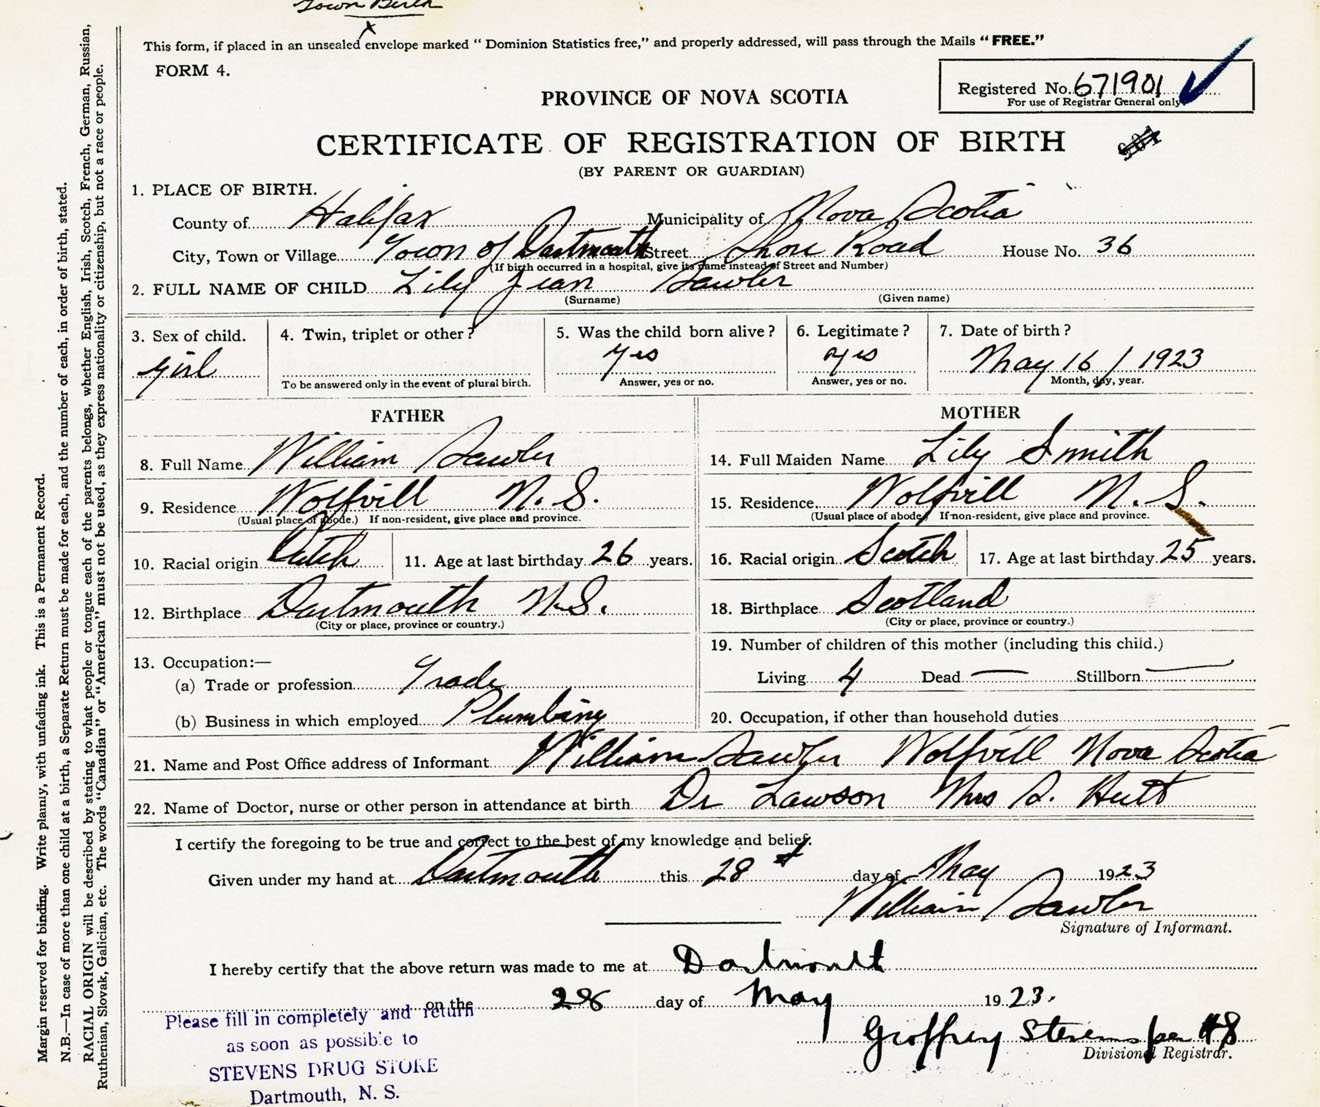 Town Birth
This form, if placed in an unsealed envelope marked "Dominion Statistics free," and properly addressed, will pass through the Mails "FREE."
FORM 4.
Registered No. 671901
For use of Registrar General only
PROVINCE OF NOVA SCOTIA
CERTIFICATE OF REGISTRATION OF BIRTH
(BY PARENT OR GUARDIAN)
1. PLACE OF BIRTH.
County of Halifax Municipality of Nova Scotia
City, Town or Village Town of Dartmouth Street Shore Road House No. 36
(If birth occurred in a hospital, give its name instead of Street and Number)
2. FULL NAME OF CHILD Lily Jean Lawler
(Surname) (Given name)
3. Sex of child. 4. Twin, triplet or other? 5. Was the child born alive? 6. Legitimate? 7. Date of birth?
girl yes yes May 16 / 1923
To be answered only in the event of plural birth. Answer, yes or no. Answer, yes or no. Month, day, year.
FATHER MOTHER
8. Full Name William Lawler 14. Full Maiden Name Lily Smith
9. Residence Wolfvill N.S. 15. Residence Wolfvill N.S.
(Usual place of abode.) If non-resident, give place and province. (Usual place of abode) If non-resident, give place and province.
10. Racial origin Dutch 11. Age at last birthday 26 years. 16. Racial origin Scotch 17. Age at last birthday 25 years.
12. Birthplace Dartmouth N.S. 18. Birthplace Scotland
(City or place, province or country.) (City or place, province or country.)
19. Number of children of this mother (including this child.)
13. Occupation:—
(a) Trade or profession Trade Living 4 Dead — Stillborn —
(b) Business in which employed Plumbing 20. Occupation, if other than household duties
21. Name and Post Office address of Informant William Lawler Wolfvill Nova Scotia
22. Name of Doctor, nurse or other person in attendance at birth Dr Lawson Mrs S. Hutt
I certify the foregoing to be true and correct to the best of my knowledge and belief.
Given under my hand at Dartmouth this 28 day of May 1923
William Lawler
Signature of Informant.
I hereby certify that the above return was made to me at Dartmouth
on the 28 day of May 1923.
Geoffrey Stevens per HS
Divisional Registrar.
Please fill in completely and return
as soon as possible to
STEVENS DRUG STORE
Dartmouth, N. S.
Margin reserved for binding. Write plainly, with unfading ink. This is a Permanent Record.
N.B.—In case of more than one child at a birth, a Separate Return must be made for each, and the number of each, in order of birth, stated.
RACIAL ORIGIN will be described by stating to what people or tongue each of the parents belongs, whether English, Irish, Scotch, French, German, Russian,
Ruthenian, Slovak, Galician, etc. The words "Canadian" or "American" must not be used, as they express nationality or citizenship, but not a race or people.